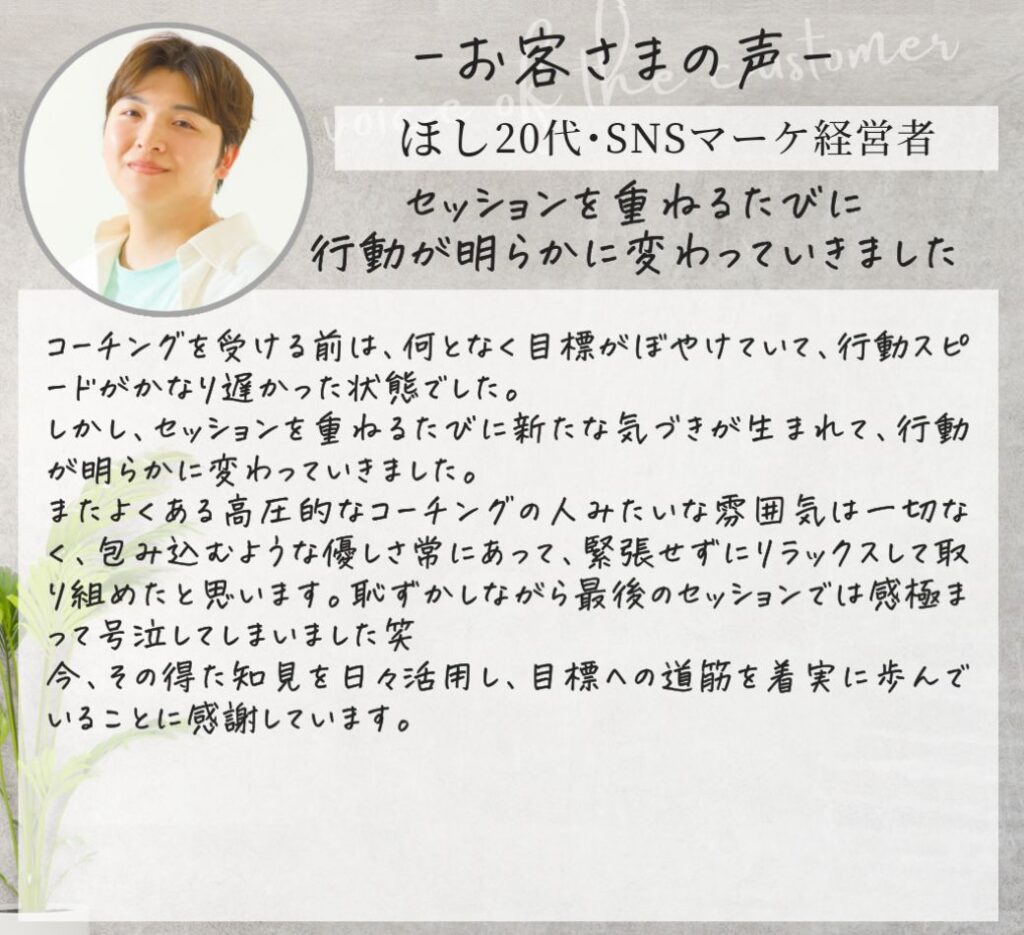 －お客さまの声－
voice of the customer
ほし20代・SNSマーケ経営者
セッションを重ねるたびに
行動が明らかに変わっていきました
コーチングを受ける前は、何となく目標がぼやけていて、行動スピ
ードがかなり遅かった状態でした。
しかし、セッションを重ねるたびに新たな気づきが生まれて、行動
が明らかに変わっていきました。
またよくある高圧的なコーチングの人みたいな雰囲気は一切な
く、包み込むような優しさ常にあって、緊張せずにリラックスして取
り組めたと思います。恥ずかしながら最後のセッションでは感極ま
って号泣してしまいました笑
今、その得た知見を日々活用し、目標への道筋を着実に歩んで
いることに感謝しています。